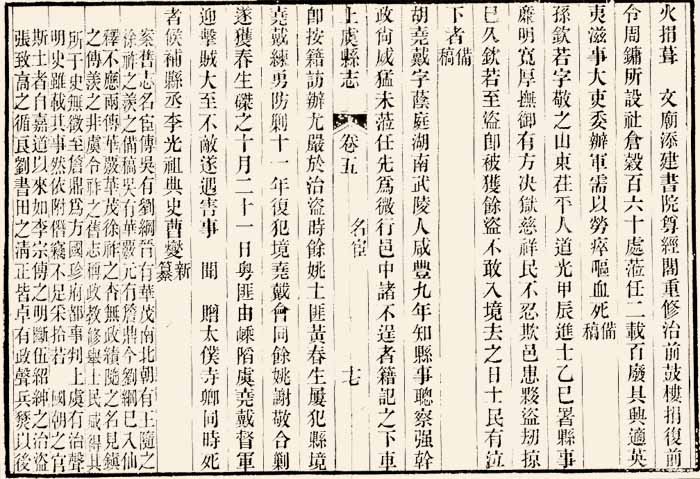 火捐葺　文廟添建書院尊經閣重修治前鼓樓捐復前
令周鏞所設社倉穀百六十處蒞任二載百廢具興適英
夷滋事大吏委辦軍需以勞瘁嘔血死備稿
孫欽若字敬之山東茌平人道光甲辰進士乙巳署縣事
廉明寬厚撫御有方决獄慈祥民不忍欺邑患夥盜刼掠
已久欽若至盜卽被獲餘盜不敢入境去之日士民有泣
下者備稿
胡堯戴字蔭庭湖南武陵人咸豐九年知縣事聰察强幹
政尙威猛未蒞任先爲微行邑中諸不逞者籍記之下車
上虞縣志 卷五 名宦 十七
卽按籍訪辦尤嚴於治盜時餘姚土匪黃春生屢犯縣境
堯戴練勇防剿十一年復犯境堯戴會同餘姚謝敬合剿
遂獲春生磔之十月二十一日粤匪由嵊陷虞堯戴督軍
迎擊賊大至不敵遂遇害事　聞　贈太僕寺卿同時死
者候補縣丞李光祖典史曹變新纂
案舊志名宦傳吳有劉綱晉有華茂南北朝有王隨之
徐祚之羨之備稿吳有華覈元有詹鼎今劉綱已入仙
釋不應兩傳華覈華茂徐祚之杳無政績隨之名見鎭
之傳羨之非虞令祚之舊志稱政教修舉士民咸得其
所于史無徵至詹鼎爲方國珍府都事判上虞有治聲
明史雖載其事然依附僭竊不足采拾若　國朝之官
斯土者自嘉道以來如李宗傳之明斷伍紹紳之治盜
張致高之循良劉書田之淸正皆卓有政聲兵燹以後